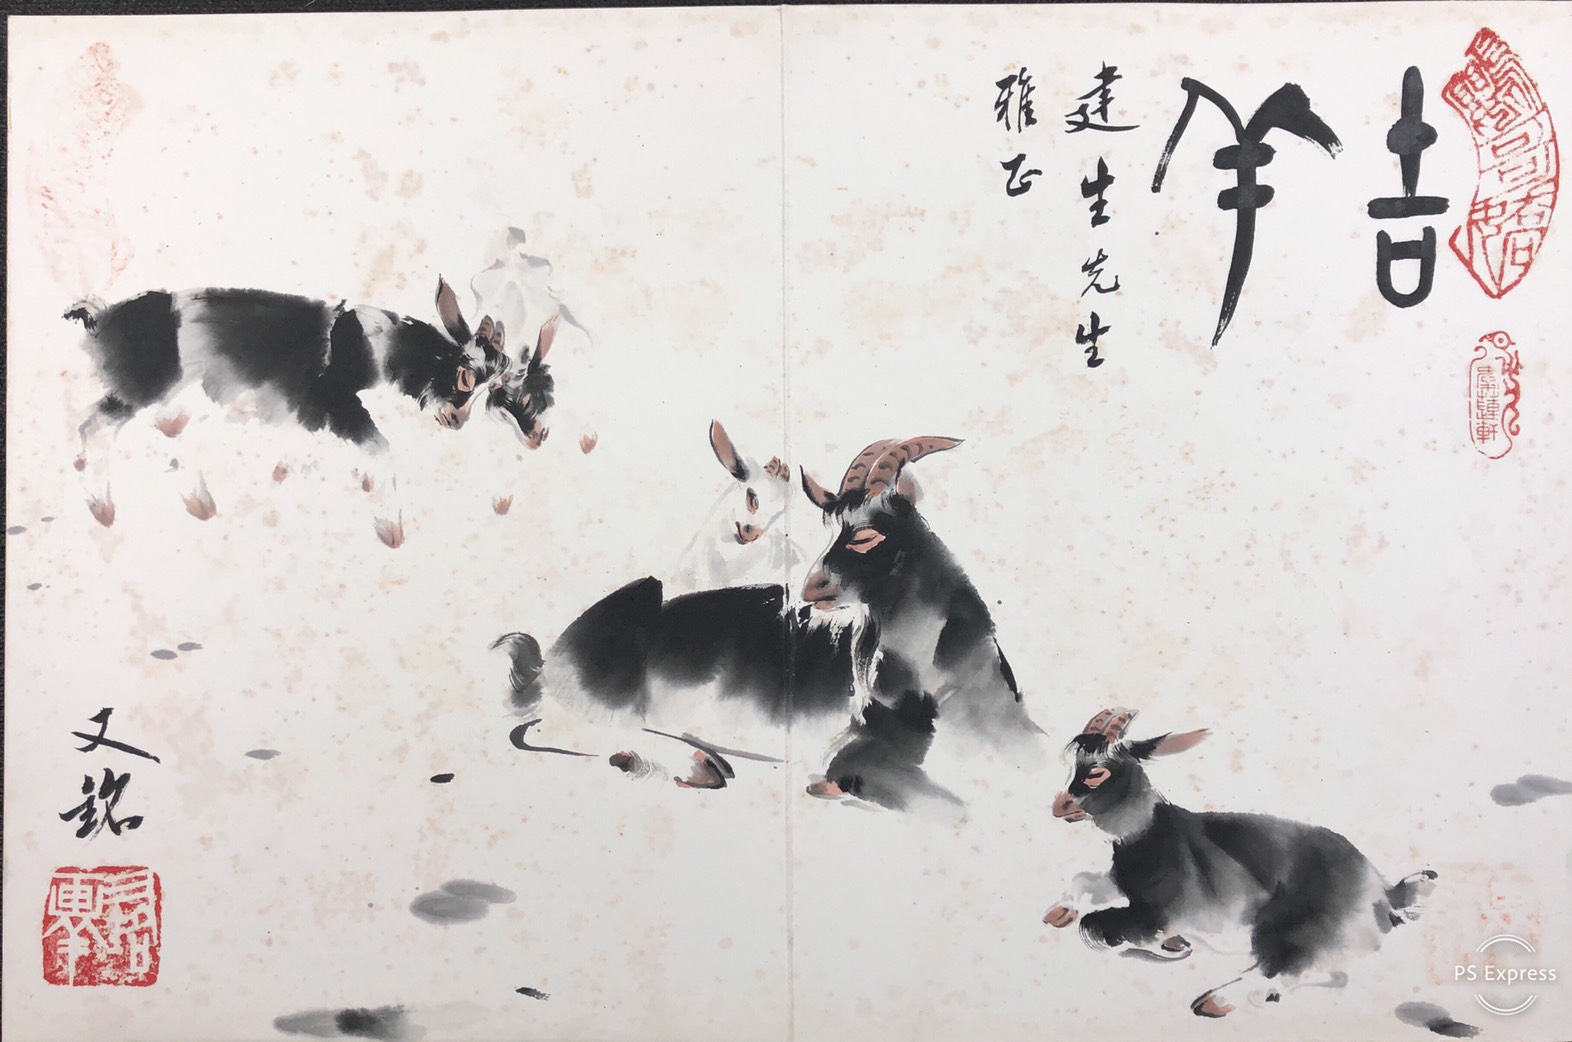 吉羊
建生先生
雅正
文銘
夢蓮軒
PS Express